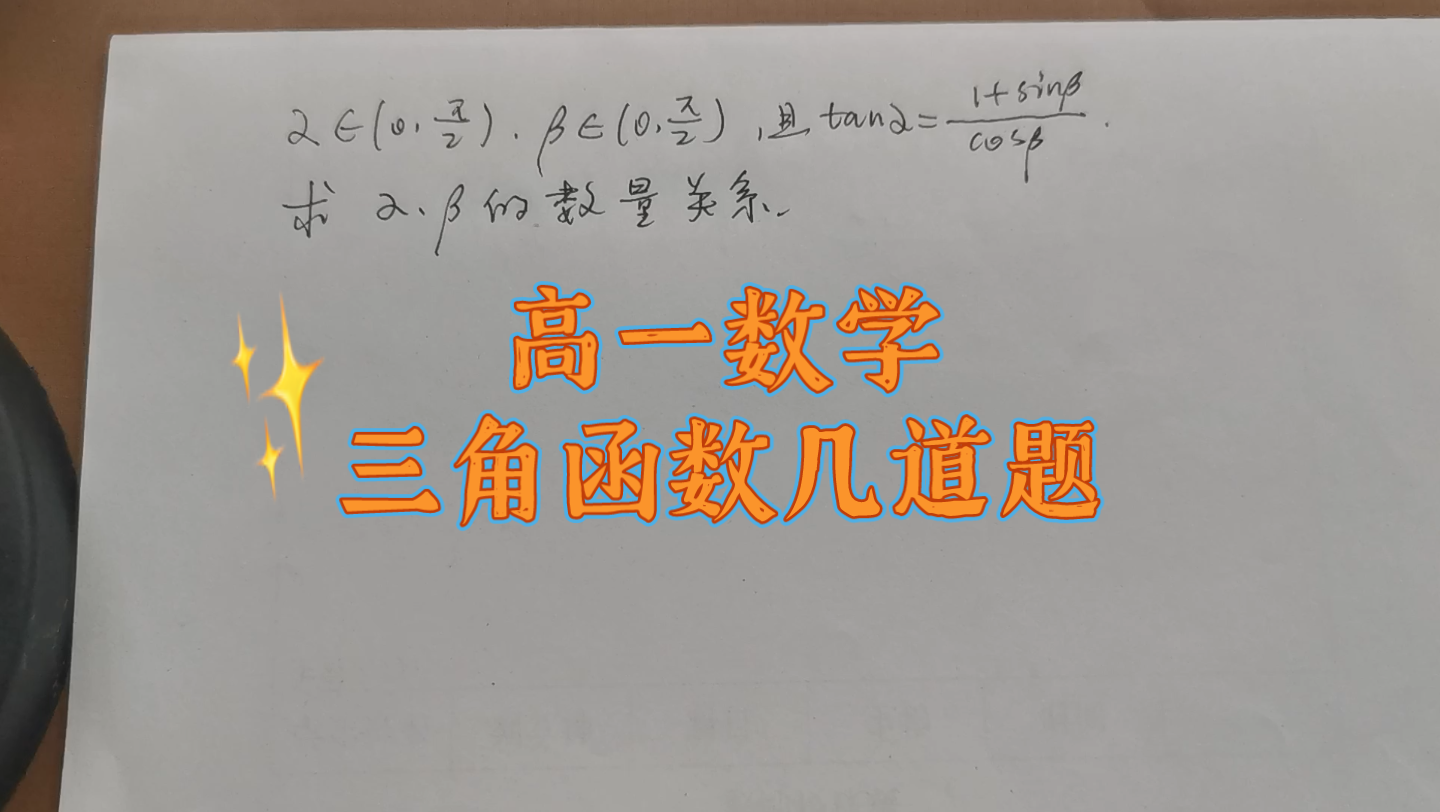 α∈(0,π/2),β∈(0,π/2),且tanα=(1+sinβ)/cosβ.
求α、β的数量关系.
高一数学
三角函数几道题